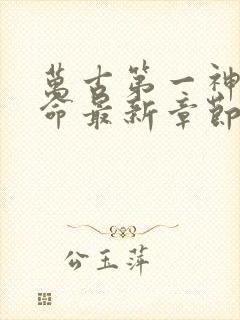 萬古第一神
命最新章節
公玉萍